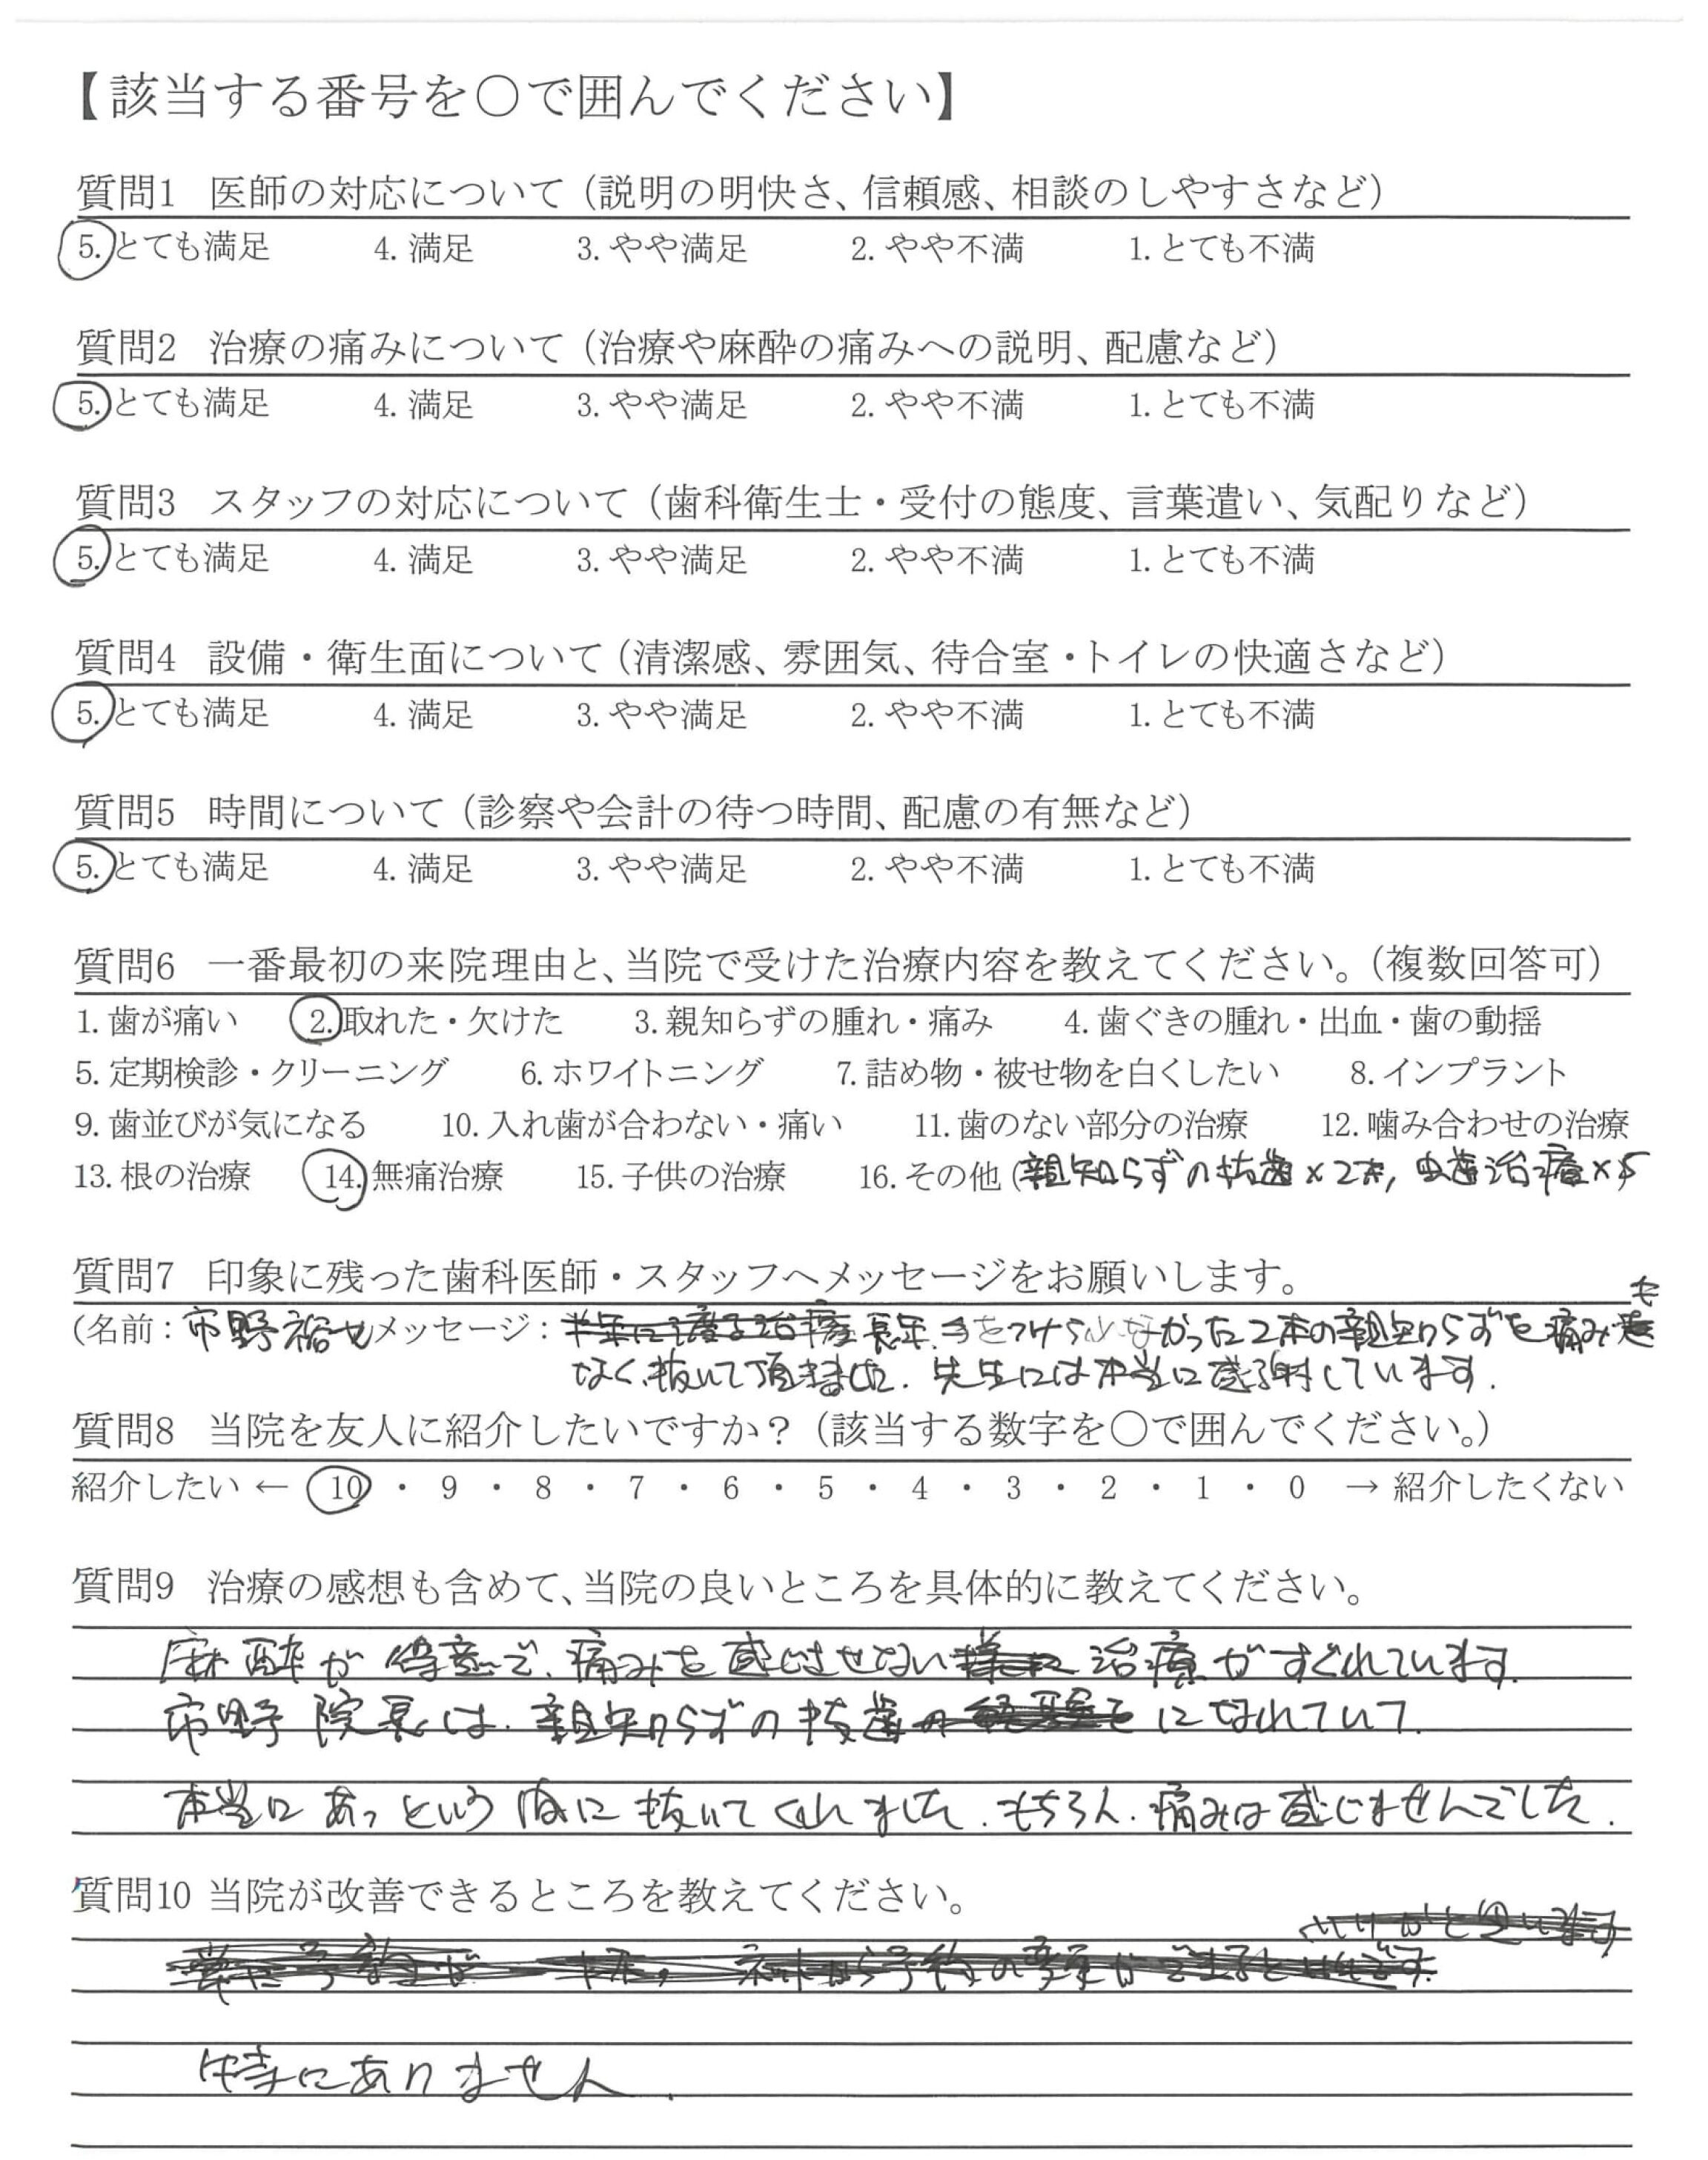 【該当する番号を〇で囲んでください】
質問1 医師の対応について（説明の明快さ、信頼感、相談のしやすさなど）
5.とても満足 4. 満足 3. やや満足 2. やや不満 1. とても不満
質問2 治療の痛みについて（治療や麻酔の痛みへの説明、配慮など）
5.とても満足 4. 満足 3. やや満足 2. やや不満 1. とても不満
質問3 スタッフの対応について（歯科衛生士・受付の態度、言葉遣い、気配りなど）
5.とても満足 4. 満足 3. やや満足 2. やや不満 1. とても不満
質問4 設備・衛生面について（清潔感、雰囲気、待合室・トイレの快適さなど）
5.とても満足 4. 満足 3. やや満足 2. やや不満 1. とても不満
質問5 時間について（診察や会計の待つ時間、配慮の有無など）
5.とても満足 4. 満足 3. やや満足 2. やや不満 1. とても不満
質問6 一番最初の来院理由と、当院で受けた治療内容を教えてください。（複数回答可）
1. 歯が痛い 2.取れた・欠けた 3.親知らずの腫れ・痛み 4.歯ぐきの腫れ・出血・歯の動揺
5. 定期検診・クリーニング 6. ホワイトニング 7. 詰め物・被せ物を白くしたい 8. インプラント
9. 歯並びが気になる 10. 入れ歯が合わない・痛い 11. 歯のない部分の治療 12. 噛み合わせの治療
13. 根の治療 14.無痛治療 15. 子供の治療 16. その他（親知らずの抜歯×2本, 虫歯治療×5）
質問7 印象に残った歯科医師・スタッフへメッセージをお願いします。
（名前：市野 メッセージ：長年、手をつけられなかった2本の親知らずを痛みも
なく、抜いて頂きました. 先生には本当に感謝しています.
質問8 当院を友人に紹介したいですか？（該当する数字を〇で囲んでください。）
紹介したい ← 10 ・ 9 ・ 8 ・ 7 ・ 6 ・ 5 ・ 4 ・ 3 ・ 2 ・ 1 ・ 0 → 紹介したくない
質問9 治療の感想も含めて、当院の良いところを具体的に教えてください。
麻酔が得意で、痛みを感じさせない治療がすぐれています.
市野院長は、親知らずの抜歯になれていて、
本当にあっという間に抜いてくれました. もちろん、痛みは感じませんでした.
質問10 当院が改善できるところを教えてください。
特にありません.